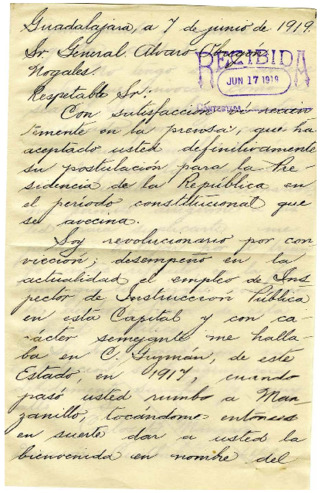 Guadalajara, a 7 de junio de 1919.
Sr. General Alvaro
RECIBIDA
JUN 17 1919
Nogales.
Respetable Sr.:
Con satisfacción recien
temente en la prensa, que ha
aceptado usted definitivamente
su postulación para la Pre
sidencia de la República en
el periodo constitucional que
se avecina.
Soy revolucionario por con
vicción; desempeño en la
actualidad el empleo de Ins
pector de Instrucción Pública
en esta Capital y con ca
rácter semejante me halla
ba en C. Guzman, de este
Estado, en 1917, cuando
pasó usted rumbo a Man
zanillo, tocandome entonces
en suerte dar a usted la
bienvenida en nombre del